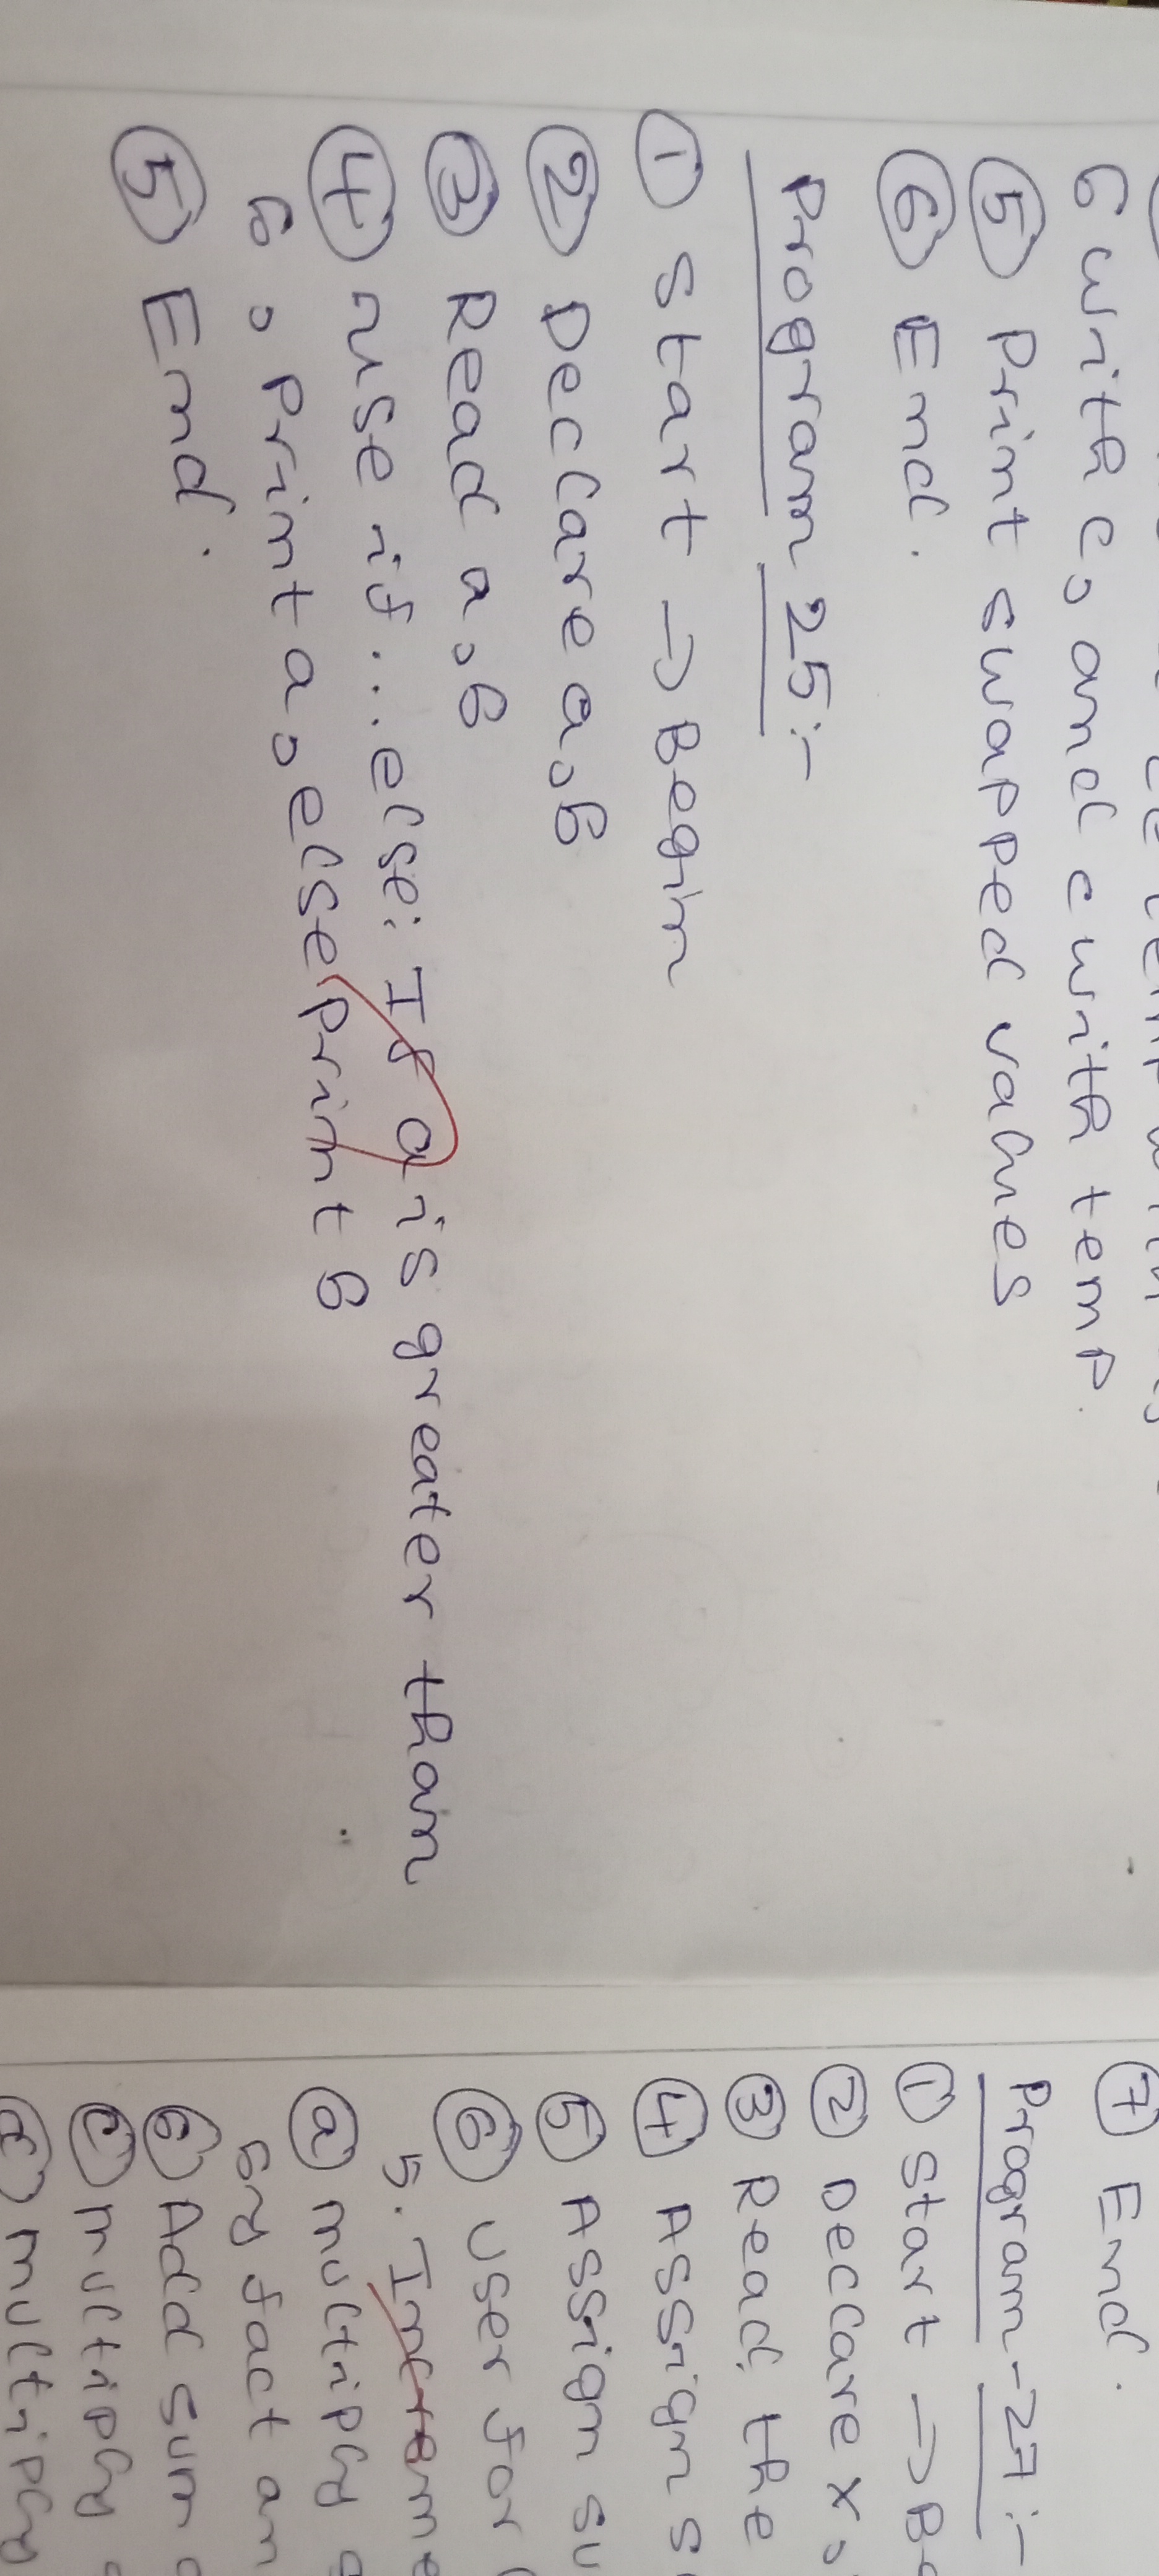 b with c, and c with temp.
⑤ Print swapped values
⑥ End.
Program 25:-
① Start → Begin
② Declare a,b
③ Read a,b
④ use if...else: If a is greater than
b, print a, else print b
⑤ End.
⑦ End.
Program-27:-
① Start →
② Declare x,
③ Read the
④ Assign
⑤ Assign
⑥ User for
5.
ⓐ multiply
by fact
ⓑ Add sum
ⓒ multiply
ⓓ multiply